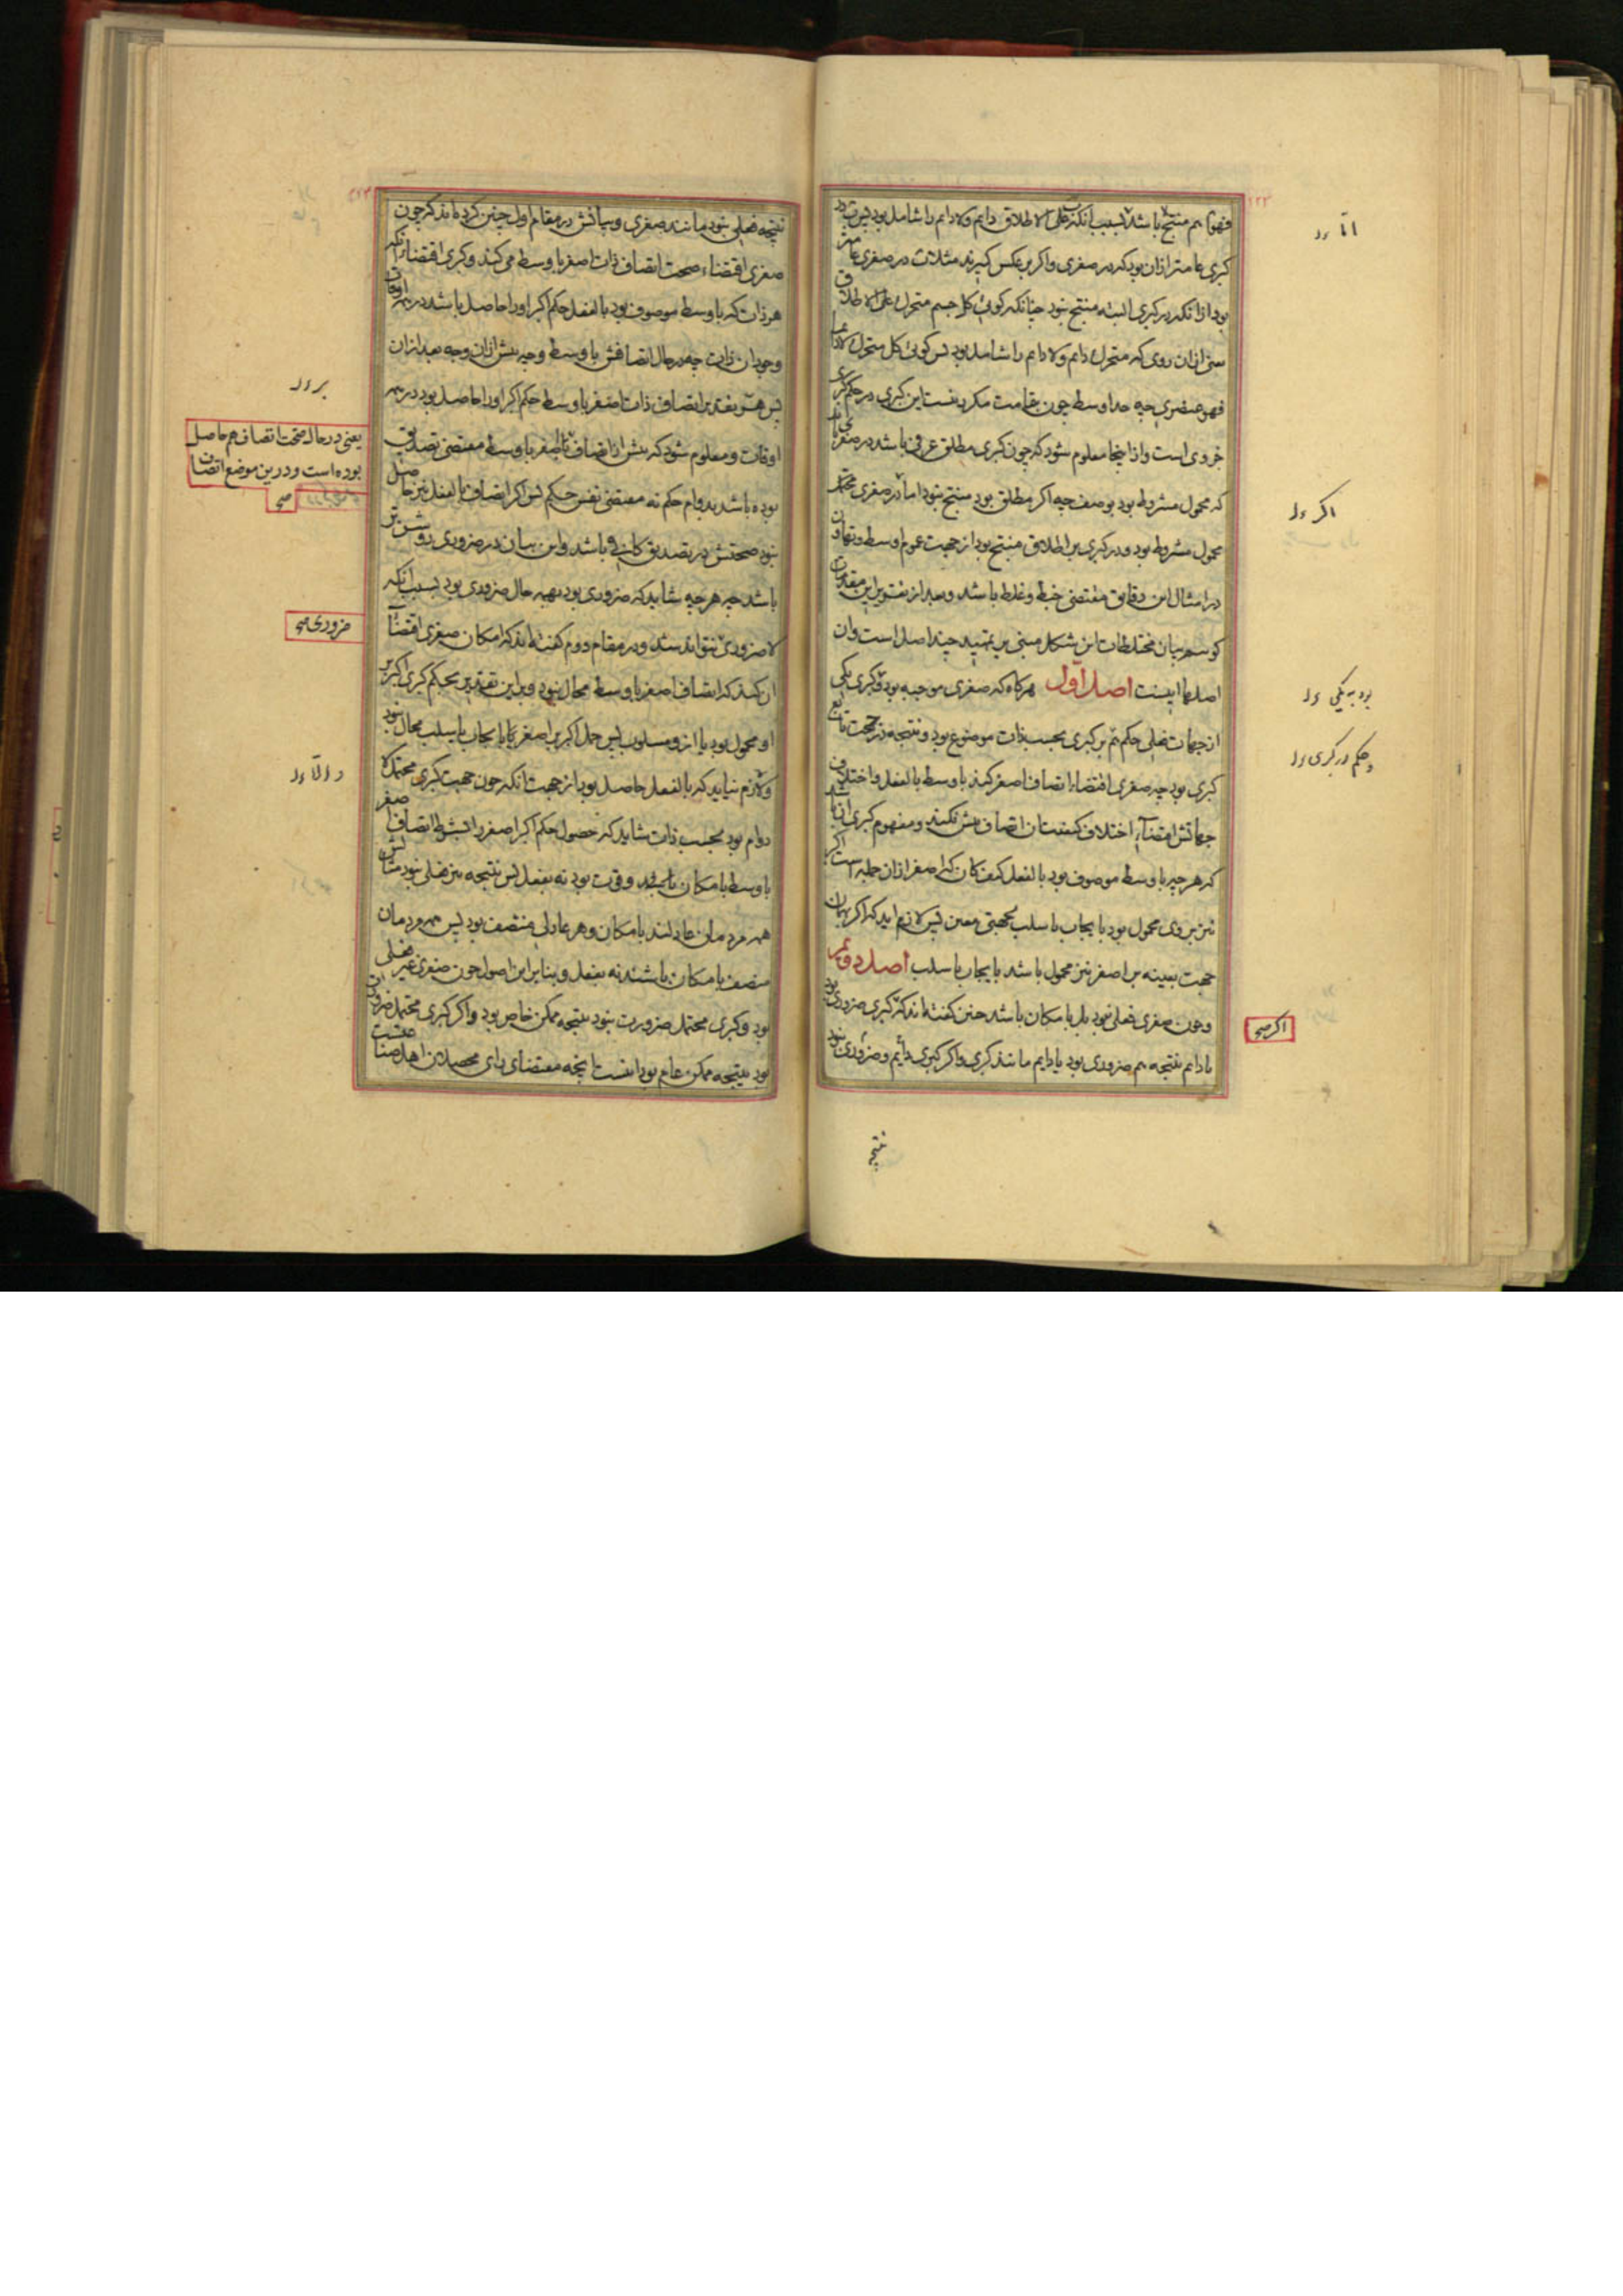 فهو ایم منتج باشد بسبب آنکه علی الاطلاق دایم ولادایم را شامل بود پس
کبری عامتر ازان بود که در صغری واگر برعکس گیرند مثلا در صغری عامتر
بود ازانکه در کبری البته منتج نبود چنانکه گوئی کل جسم متحرک علی الاطلاق
یعنی ازان روی که متحرک دایم ولادایم را شامل بود پس گوئی کل متحرک لادایما
فهو عنصری چه حد اوسط چون عامست مکرر نیست این کبری در حکم کبری
جزوی است وازاینجا معلوم شود که چون کبری مطلق عرفی باشد در صغری باید
که محمول مشروط بود بوصف چه اگر مطلق بود منتج نبود اما در صغری
محمول مشروط بود ودر کبری بر اطلاق منتج بود از جهت عموم اوسط وتهاون
در امثال این دقایق مقتضی خبط وغلط باشد وبعد از تقویر این مقدمات
گوییم بیان مختلطات این شکل مبنی بر تمهید چند اصل است وان
اصلها اینست اصل اول هرگاه که صغری موجبه بود وکبری یکی
از جهات فعلی حکم هم بر کبری بحسب ذات موضوع بود ونتیجه در جهت تابع
کبری بود چه صغری اقتضاء اتصاف اصغر کند باوسط بالفعل واختلاف
جهاتش اقتضاء اختلاف کیفیت ان اتصاف بیش نکند ومفهوم کبری آن باشد
که هرچیز باوسط موصوف بود بالفعل کیف کان که اصغر ازان جمله است اکبر
نیز بروی محمول بود بایجاب یا سلب بجهتی معین پس لازم اید که اکبر بهمان
جهت بعینه بر اصغر نیز محمول باشد بایجاب یا سلب اصل دوم
وچون صغری فعلی نبود بل بامکان باشد چنین گفته اند که کبری ضروری بود
یا دایم نتیجه هم ضروری بود یا دایم مانند کبری واگر کبری دایم وضروری نبود
نتیجه
اما
اگر
بود بیکی
وحکم در کبری
اگر صح
نتیجه فعلی نبود مانند صغری وبیانش در مقام اول چنین کرده اند که چون
صغری اقتضاء صحت اتصاف ذات اصغر باوسط می کند وکبری اقتضاء انکه
هر ذات که باوسط موصوف بود بالفعل حکم اکبر اورا حاصل باشد در همه اوقات
وجود ان ذات چه در حال اتصافش باوسط وچه پیش ازان وچه بعد ازان
پس هم بتقدیر اتصاف ذات اصغر باوسط حکم اکبر اورا حاصل بود در همه
اوقات ومعلوم شود که پیش از اتصاف ذات اصغر باوسط مقتضی تصدیق
بوده باشد بدوام حکم نه مقتضی نفس حکم پس اگر اتصاف بالفعل نیز حاصل
نبود صحتش در تصدیق کافی باشد واین بیان در ضروری روشن تر
باشد چه هرچه شاید که ضروری بود بهمه حال ضروری بود بسبب انکه
لاضروری نتواند شد ودر مقام دوم گفته اند که امکان صغری اقتضاء
ان کند که اتصاف اصغر باوسط محال نبود وبراین تقدیر بحکم کبری اکبر بر
او محمول بود یا ازو مسلوب پس حمل اکبر بر اصغر یا بایجاب یا بسلب محال نبود
ولازم نیاید که بالفعل حاصل بود از جهت انکه چون جهت کبری محتمل لا
دوام بود بحسب ذات شاید که حصول حکم اکبر اصغر را بشرط اتصاف اصغر
باوسط بامکان باشد وقوت بود نه بفعل پس نتیجه نیز فعلی نبود مثالش
همه مردمان عادلند بامکان وهر عادلی منتصف بود پس همه مردمان
منصف بامکان باشند نه بفعل وبنابراین اصول چون صغری غیر فعلی
بود وکبری محتمل ضرورت نبود نتیجه ممکن خاص بود واگر کبری محتمل ضرورت
بود نتیجه ممکن عام بود اینست انچه مقتضای رای محصلان اهل صناعتست
بر
یعنی در حال صحت اتصاف هم حاصل
بوده است ودرین موضع اتصاف
صح
ضروری صح
والا